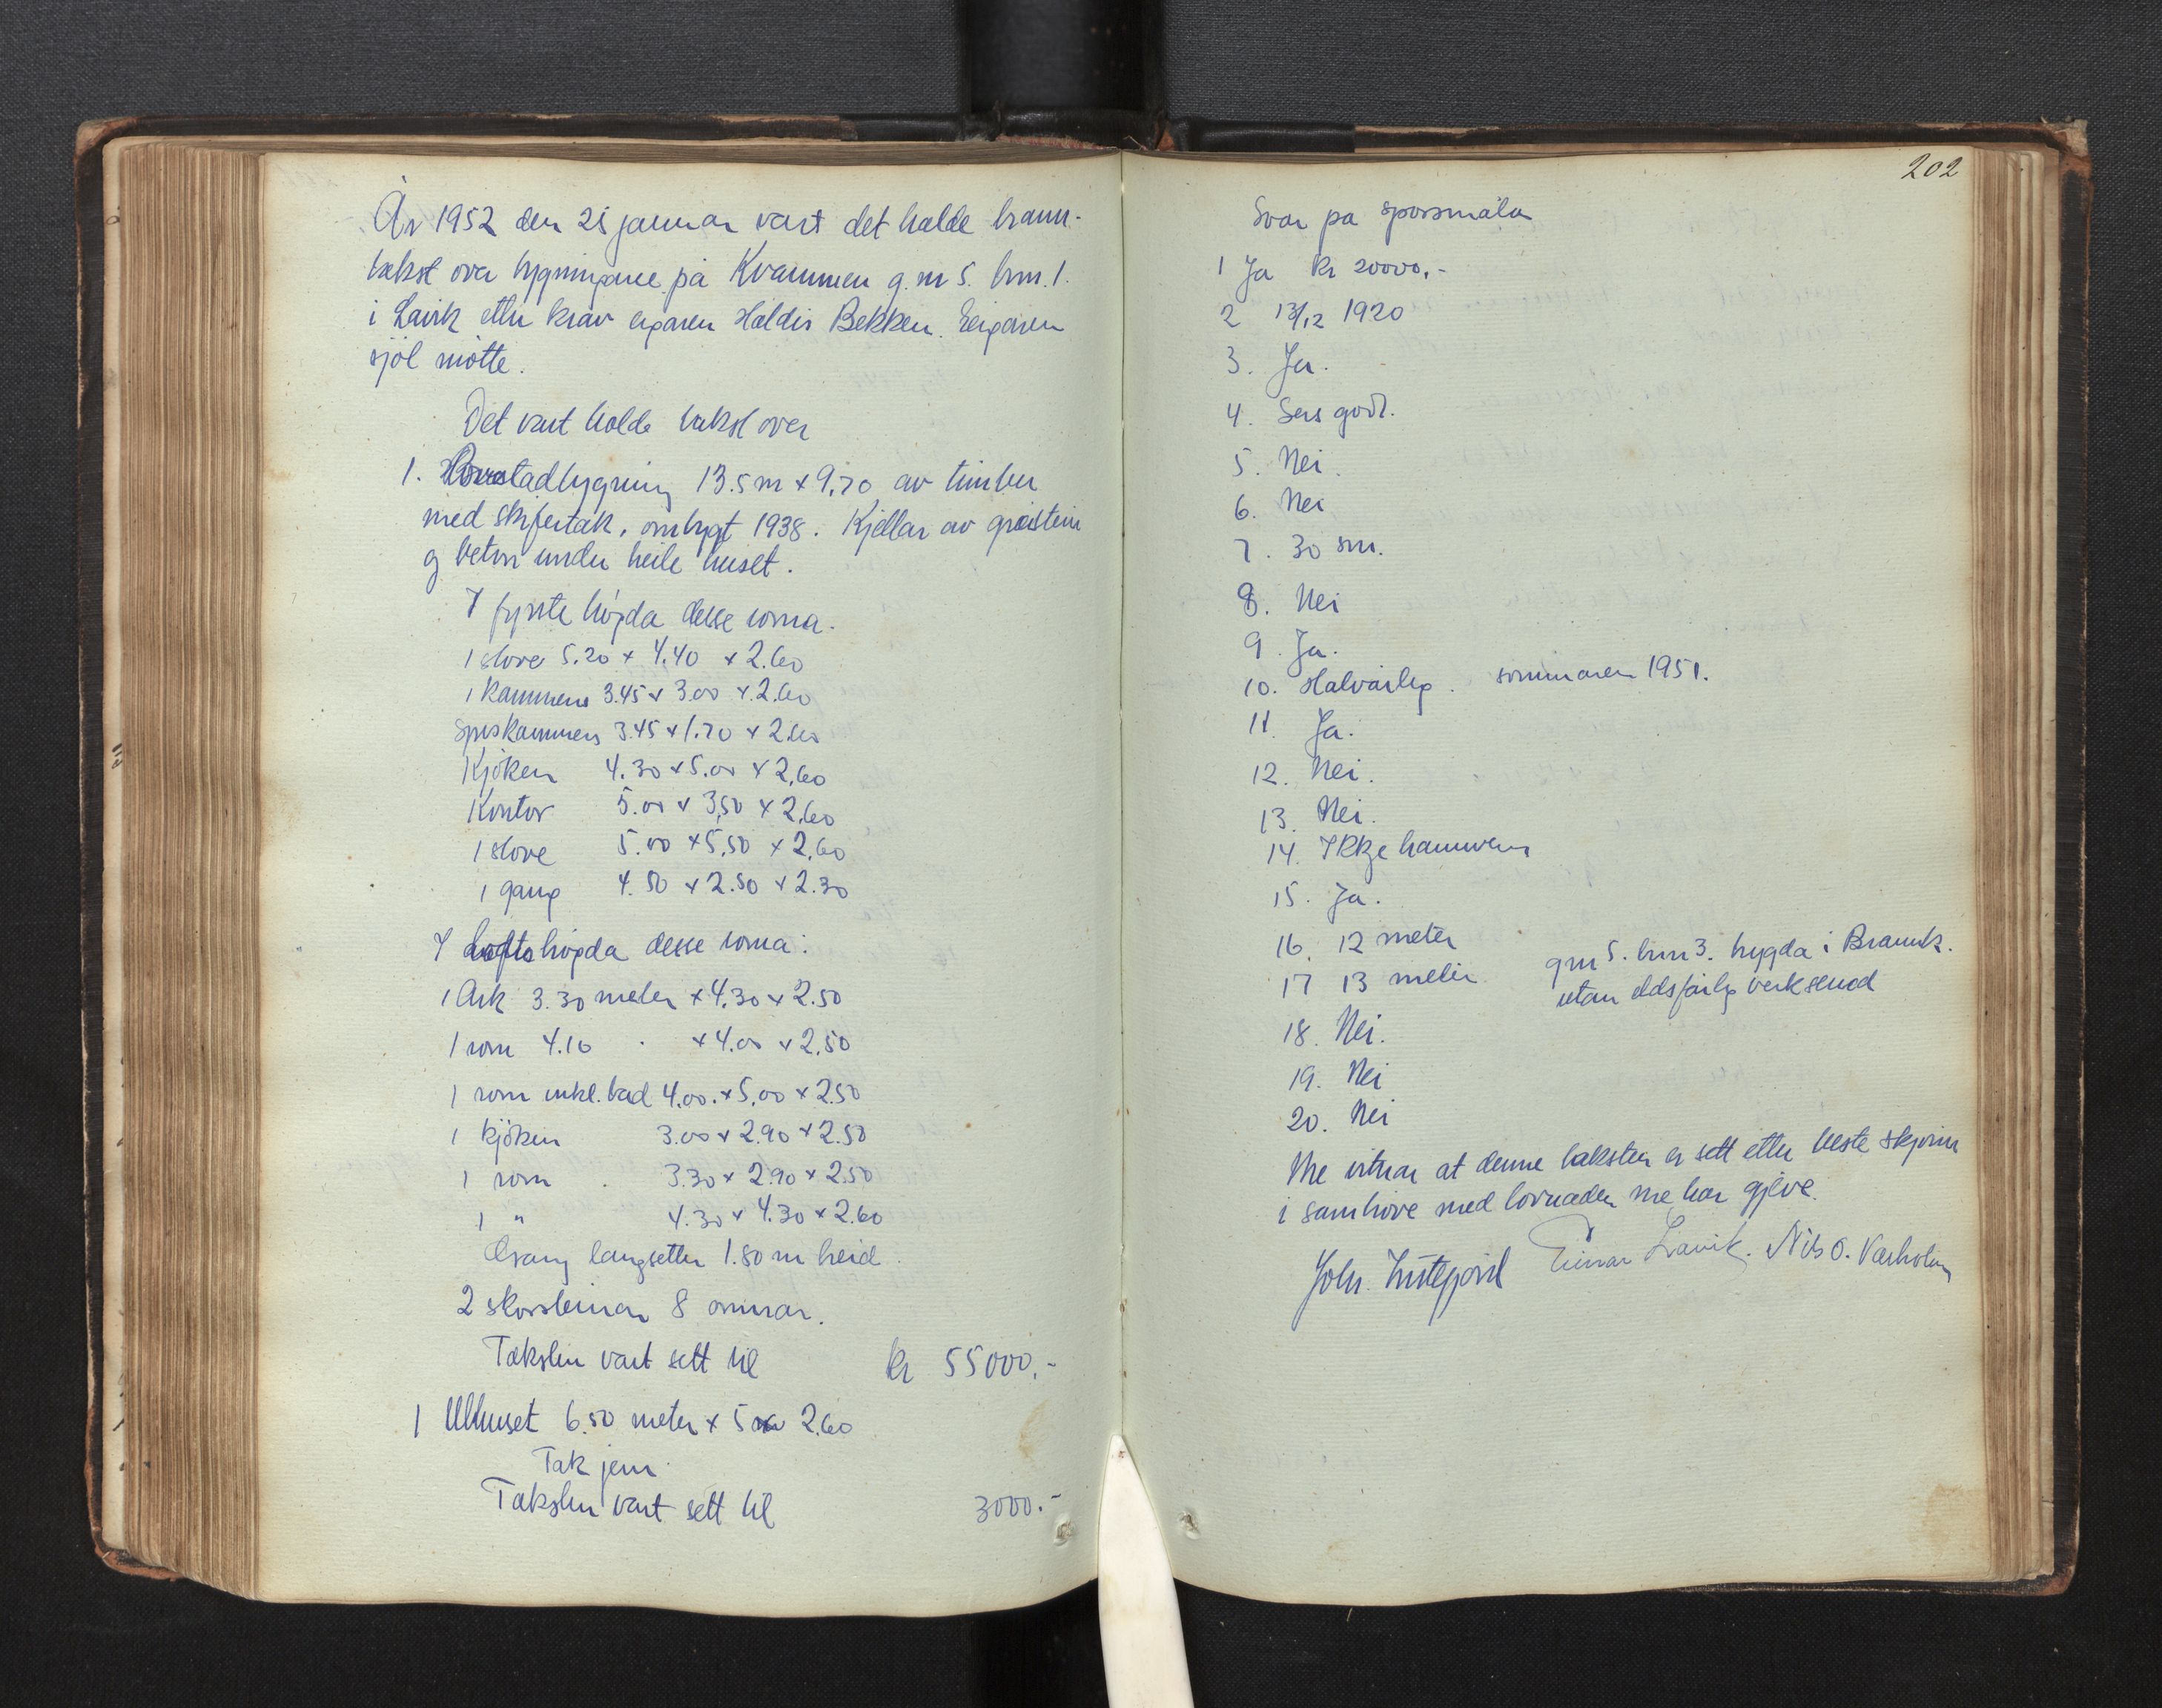 År 1952 den 25 januar vart det halde brann-
takst over bygningane på Kvammen g. nr 5. brn. 1.
i Lavik etter krav eigaren Haldis Bekken. Eigaren
sjøl møtte.
Det vart halde takst over
1. Bustadbygning 13.5 m x 9,70 av timber
med skifertak, ombygt 1938. Kjellar av gråstein
og beton under heile huset.
I fyrste høgda desse roma.
1 stove 5.20 x 4.40 x 2.60
1 kammers 3.45 x 3.00 x 2.60
Speskammers 3.45 x 1.70 x 2.60
Kjøken 4.30 x 5.00 x 2.60
Kontor 5.00 x 3,50 x 2,60
1 stove 5.00 x 5,50 x 2,60
1 gang 4.50 x 2.50 x 2.30
I loftshøgda desse roma:
1 Ark 3.30 meter x 4.30 x 2.50
1 rom 4.10 . x 4.00 x 2.50
1 rom inkl. bad 4.00 x 5.00 x 2.50
1 kjøken 3.00 x 2.90 x 2.50
1 rom . 3.30 x 2.90 x 2.50
1 " 4.30 x 4.30 x 2.60
langsetter 1.80 m breid
2 skorsteinar 8 omnar.
Taksten vart sett til kr 55000.-
1 Uthuset 6.50 meter x 5 2.60
Tak jern
Taksten vart sett til 3000.-
202
Svar på spørsmåla
1 Ja kr 20000.-
2 13/12 1920
3. Ja.
4. Sers godt.
5. Nei.
6. Nei
7. 30 sm.
8. Nei
9. Ja.
10. Halvårleg. sommaren 1951.
11. Ja.
12. Nei.
13. Nei.
14. Ikkje brannvern
15. Ja.
16. 12 meter
17 13 meter
gnr 5. brn 3. trygda i Brannk.
utan eldsfarleg verksemd
18. Nei.
19. Nei
20. Nei
Me vitnar at denne taksten er sett etter beste skjønn
i samhøve med lovnaden me har gjeve.
Joh. Einar Lavik. Nils O. Varholm